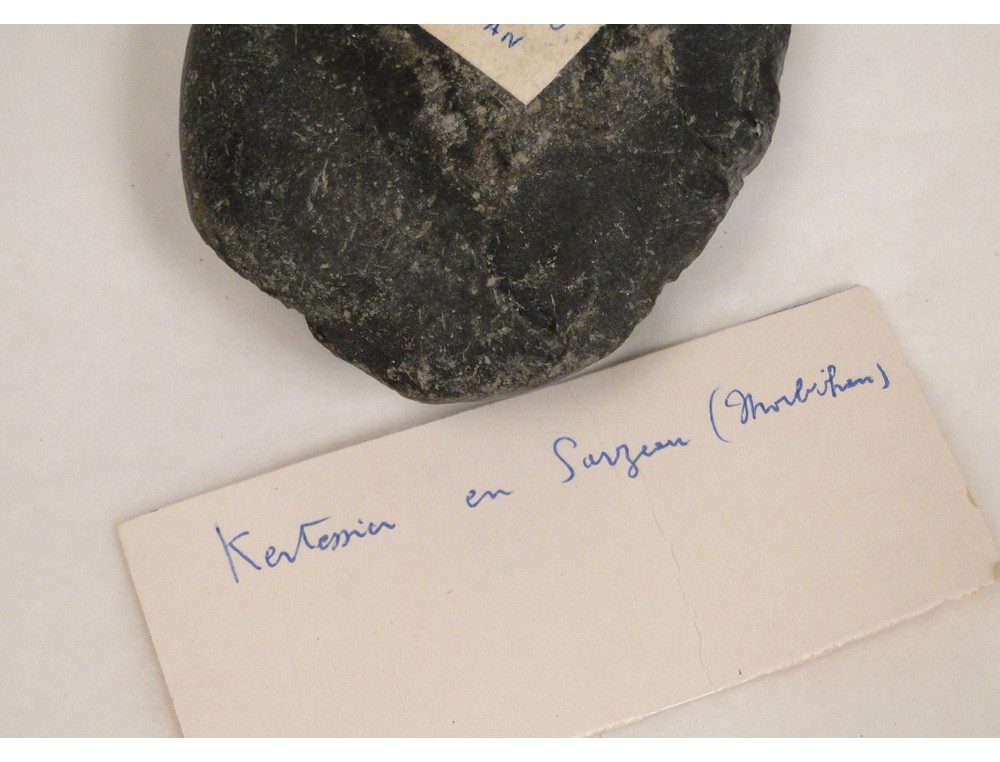 AN
Kertessier en Sarzeau (Morbihan)